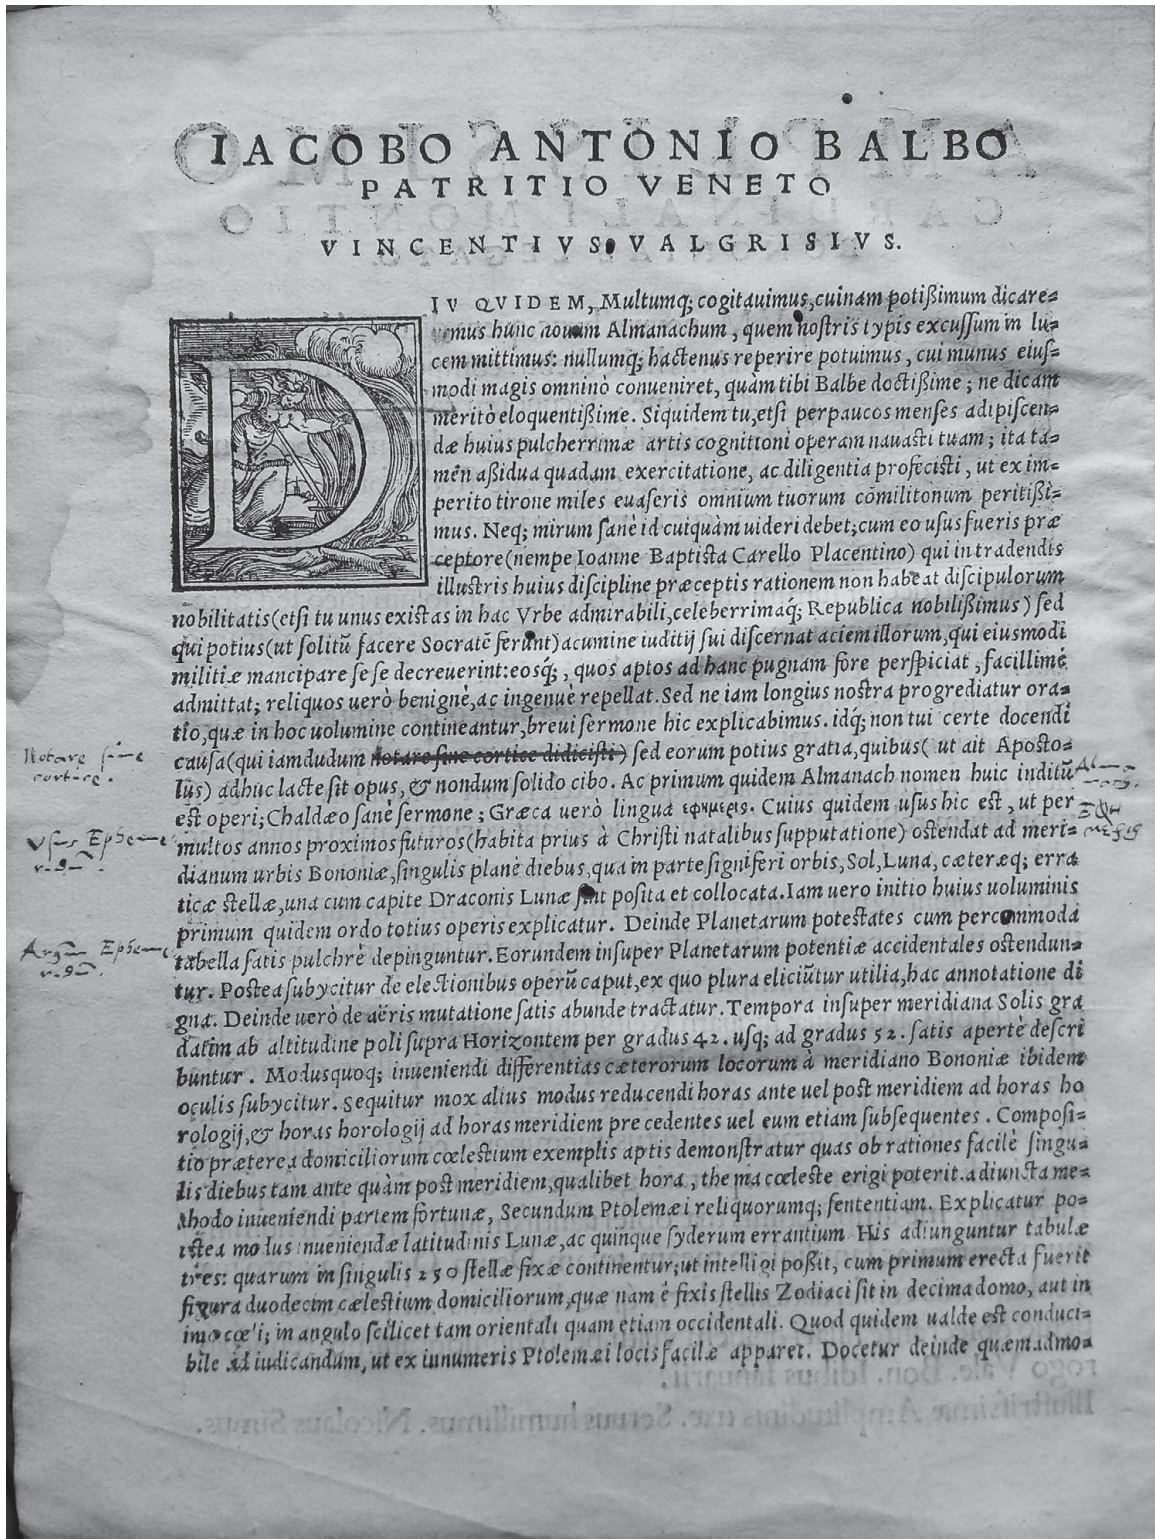 IACOBO ANTONIO BALBO
PATRITIO VENETO
VINCENTIVS VALGRISIVS.
DIV QVIDEM, Multumq; cogitauimus, cuinam potißimum dicare-
mus hunc nouum Almanachum, quem nostris typis excussum in lu-
cem mittimus: nullumq; hactenus reperire potuimus, cui munus eius-
modi magis omninò conueniret, quàm tibi Balbe doctißime; ne dicam
meritò eloquentißime. Siquidem tu, etsi perpaucos menses adipiscen-
dæ huius pulcherrimæ artis cognitioni operam nauasti tuam; ita ta-
men aßidua quadam exercitatione, ac diligentia profecisti, ut ex im-
perito tirone miles euaseris omnium tuorum cōmilitonum peritißi-
mus. Neq; mirum sanè id cuiquàm uideri debet; cum eo usus fueris præ
ceptore (nempe Ioanne Baptista Carello Placentino) qui in tradendis
illustris huius discipline præceptis rationem non habeat discipulorum
nobilitatis (etsi tu unus existas in hac Vrbe admirabili, celeberrimaq́; Republica nobilißimus) sed
qui potius (ut solitū facere Socratē ferunt) acumine iuditij sui discernat aciem illorum, qui eiusmodi
militiæ mancipare se se decreuerint: eosq́;, quos aptos ad hanc pugnam fore perspiciat, facillimè
admittat; reliquos uerò benignè, ac ingenuè repellat. Sed ne iam longius nostra progrediatur ora-
tio, quæ in hoc uolumine contineantur, breui sermone hic explicabimus. idq́; non tui certe docendi
Notare sine
cortice.
causa (qui iamdudum notare sine cortice didicisti) sed eorum potius gratia, quibus (ut ait Aposto-
lus) adhuc lacte sit opus, & nondum solido cibo. Ac primum quidem Almanach nomen huic inditū
est operi; Chaldæo sanè sermone; Græca uerò lingua εφημερις. Cuius quidem usus hic est, ut per
Vsus Epheme
multos annos proximos futuros (habita prius à Christi natalibus supputatione) ostendat ad meri-
dianum urbis Bononiæ, singulis planè diebus, qua in parte signiferi orbis, Sol, Luna, cæteræq; erra
ticæ stellæ, una cum capite Draconis Lunæ sint posita et collocata. Iam uero initio huius uoluminis
primum quidem ordo totius operis explicatur. Deinde Planetarum potestates cum percommoda
tabella satis pulchrè depinguntur. Eorundem insuper Planetarum potentiæ accidentales ostendun-
tur. Postea subycitur de electionibus operū caput, ex quo plura eliciūtur utilia, hac annotatione di
gna. Deinde uerò de aëris mutatione satis abunde tractatur. Tempora insuper meridiana Solis gra
datim ab altitudine poli supra Horizontem per gradus 42. usq; ad gradus 52. satis apertè descri
buntur. Modusquoq; inueniendi differentias cæterorum locorum à meridiano Bononiæ ibidem
oculis subycitur. Sequitur mox alius modus reducendi horas ante uel post meridiem ad horas ho
rologij, & horas horologij ad horas meridiem precedentes uel eum etiam subsequentes. Composi-
tio præterea domiciliorum cœlestium exemplis aptis demonstratur quas ob rationes facilè singu-
lis diebus tam ante quàm post meridiem, qualibet hora, thema cœleste erigi poterit. adiuncta me-
thodo inueniendi partem fortunæ, Secundum Ptolemæi reliquorumq; sententiam. Explicatur po-
stea modus inueniendæ latitudinis Lunæ, ac quinque syderum errantium. His adiunguntur tabulæ
tres: quarum in singulis 250 stellæ fixæ continentur; ut intelligi poßit, cum primum erecta fuerit
figura duodecim cœlestium domiciliorum, quæ nam è fixis stellis Zodiaci sit in decima domo, aut in
imo cœli; in angulo scilicet tam orientali quam etiam occidentali. Quod quidem ualde est conduci-
bile ad iudicandum, ut ex innumeris Ptolemæi locis facilæ apparet. Docetur deinde quæmadmo-